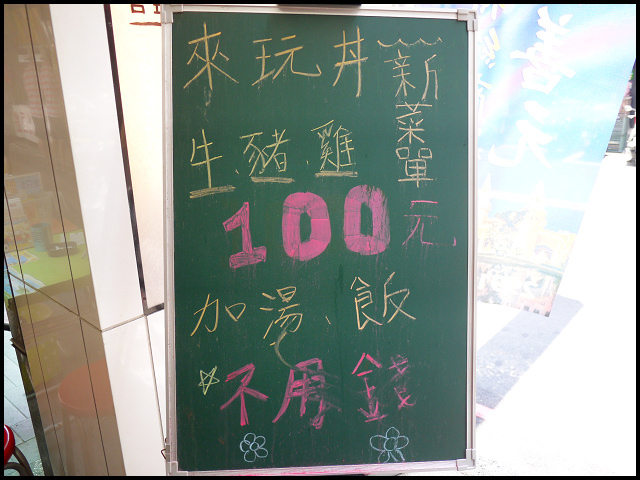 來玩丼
新菜單
牛、豬、雞
100元
加湯、飯
不用錢